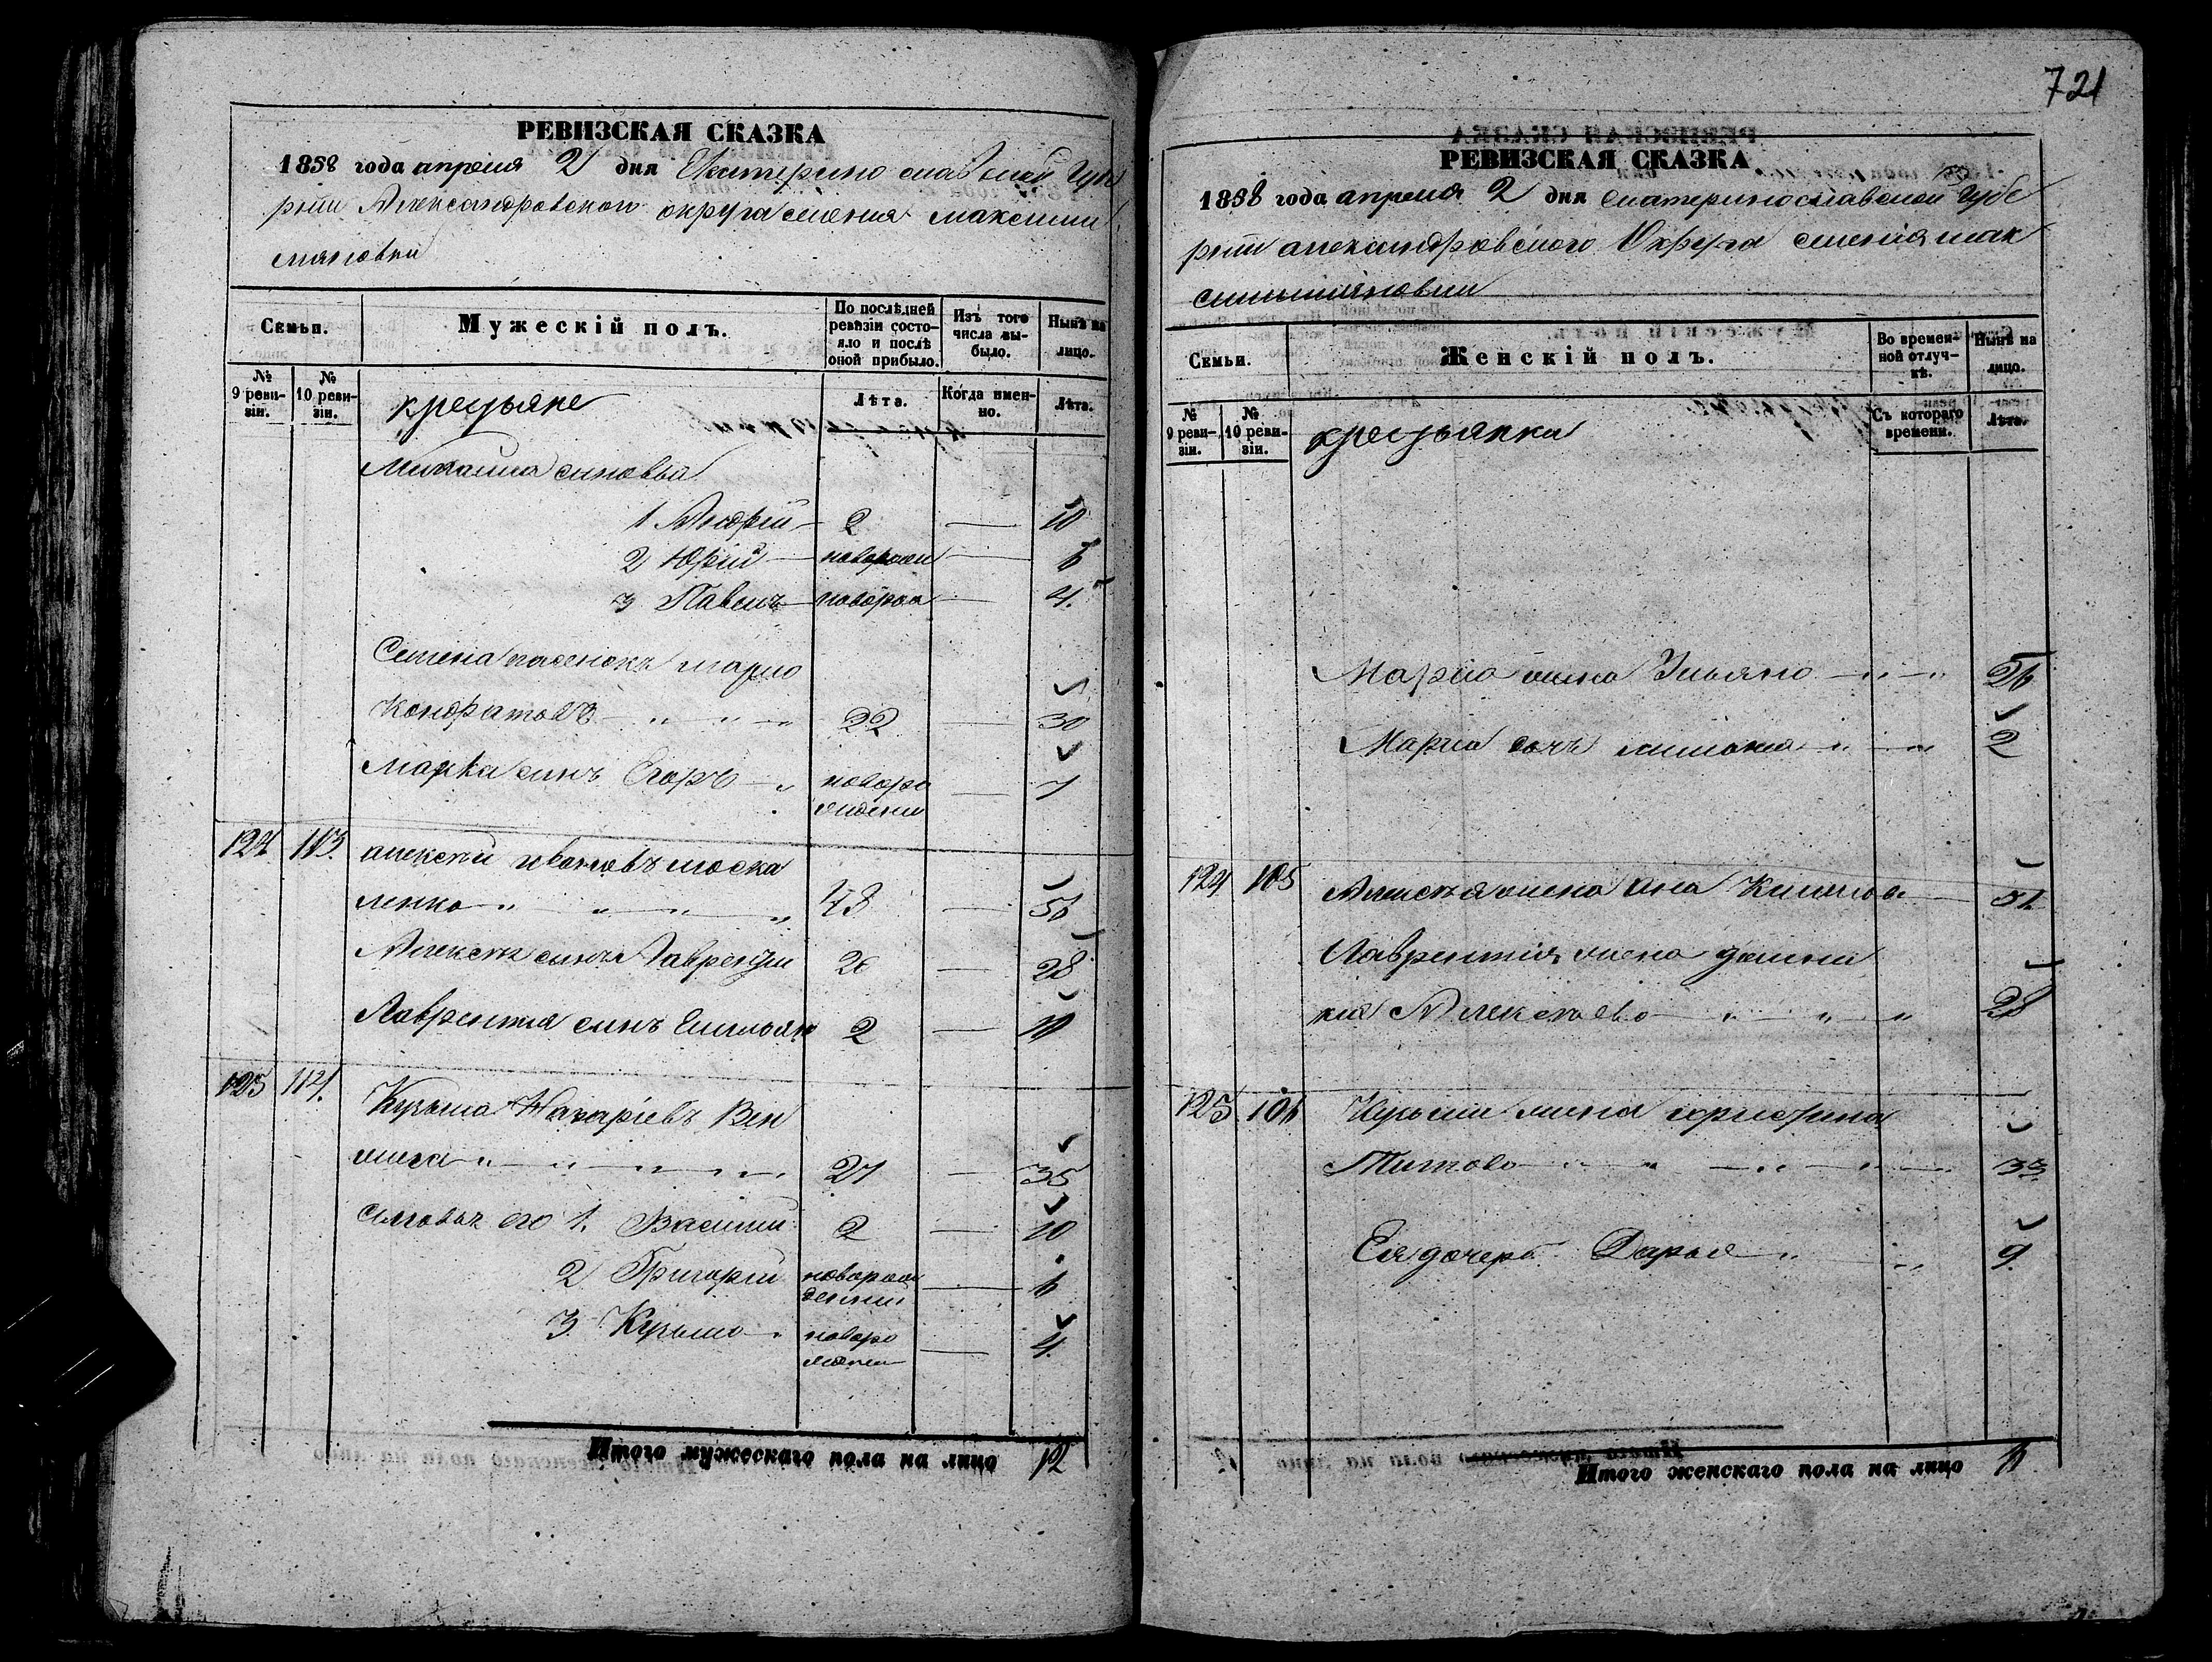 РЕВИЗСКАЯ СКАЗКА
1858 года апреля 2 дня Екатеринославской Губе
рнии Александровского округа имения Максими
мяновки
Семьи.
Мужескій полъ.
По послѣдней ревизіи состояло и послѣ оной прибыло.
Изъ того числа выбыло.
Нынѣ на лицо.
№ 9 ревизіи.
№ 10 ревизіи.
крестьяне
Лѣта.
Когда именно.
Лѣта.
Михаила синовья
1 Андрій 2 — 10
2 Юрій — новорож — 6
3 Павелъ — новорож — 4.
Семена марко
Кондратовъ 22 — 30
Марка синъ Егоръ новоро — 7
ждени
124 113. алексей ивановъ моска
ленко 48 — 56
Алексея синъ Лаврентий 20 — 28
Лаврентия синъ Емильян 2 — 10
125 114. Кузьма Макаріевъ Вен
27 — 35
синовья его 1. Василий 2 — 10
2 Григорий новорож — 6
дений
3. Кузьма новоро — 4.
ждени
Итого мужескаго пола на лицо 12
721
РЕВИЗСКАЯ СКАЗКА
1858 года апреля 2 дня Екатеринославской Губе
рнии александровского Округа имения мак
симилияновки
Семьи.
Женскій полъ.
Во временной отлучкѣ.
Нынѣ на лицо.
№ 9 ревизіи.
№ 10 ревизіи.
крестьянки
Съ котораго времени.
Лѣта.
Марка жена Ульяна 26
Марка дочь 2
124 105 Алексея жена Ана 51.
Лаврентия жена
кия Алексеева 28
125 106 Кузьми жена христина
Титова 33
Ея дочерь Дарья 9.
Итого женскаго пола на лицо 6